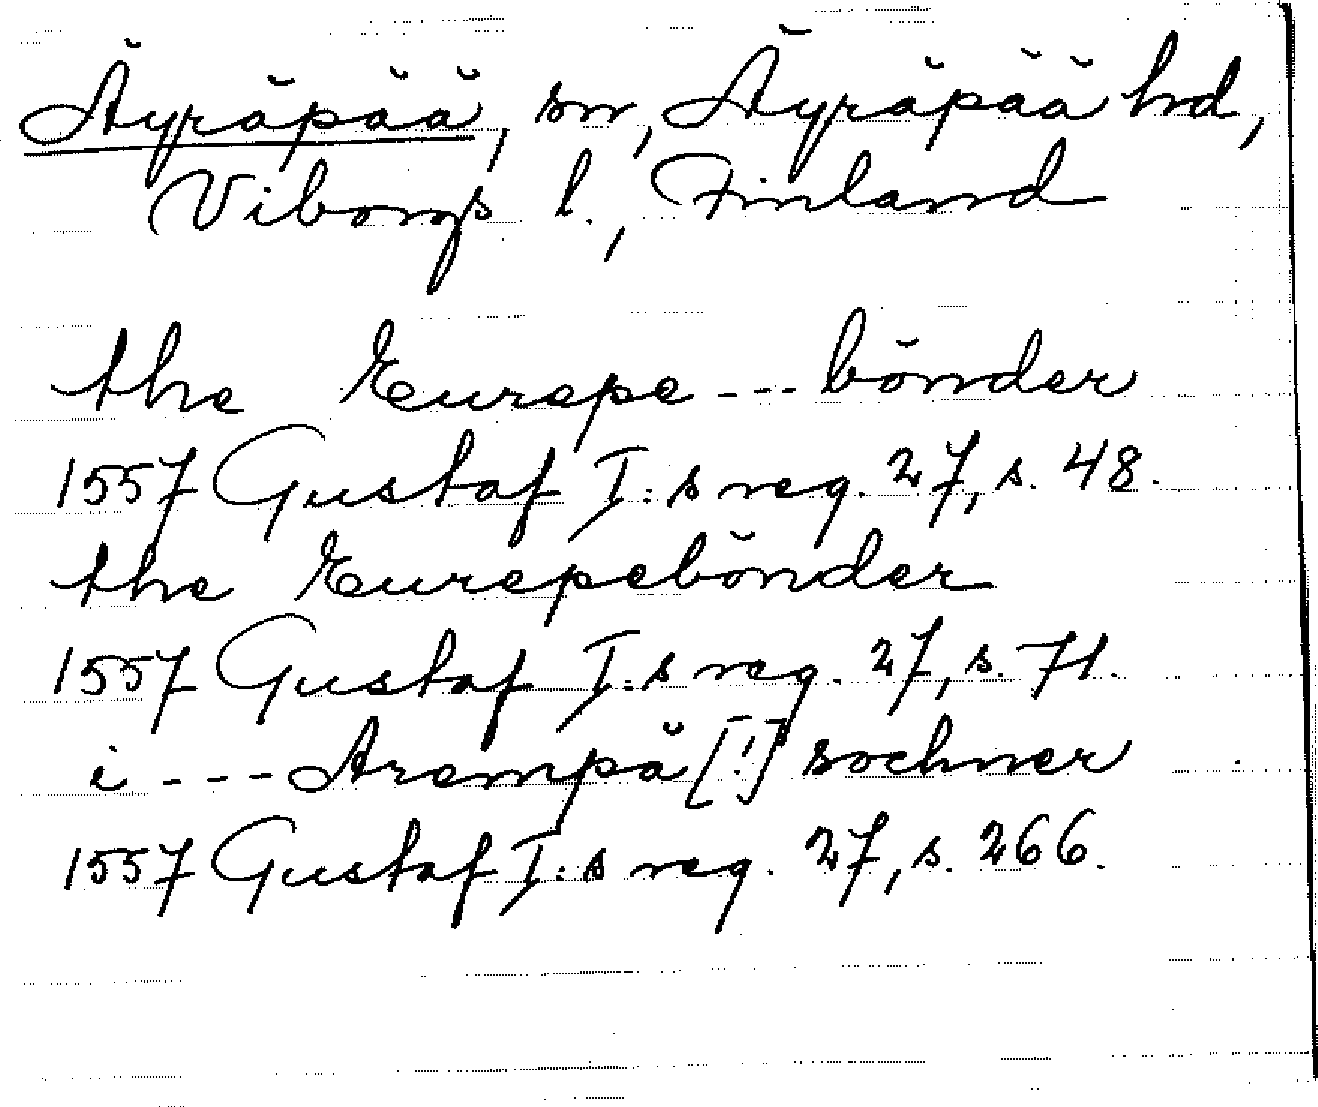 Äyräpää, sn, Äyräpää hd,
Viborgs l., Finland
the Eurepe --- bönder
1557 Gustaf I:s reg. 27, s. 48.
the Eurepebönder
1557 Gustaf I:s reg. 27, s. 71.
i --- Arempä [!] sochner
1557 Gustaf I:s reg. 27, s. 266.